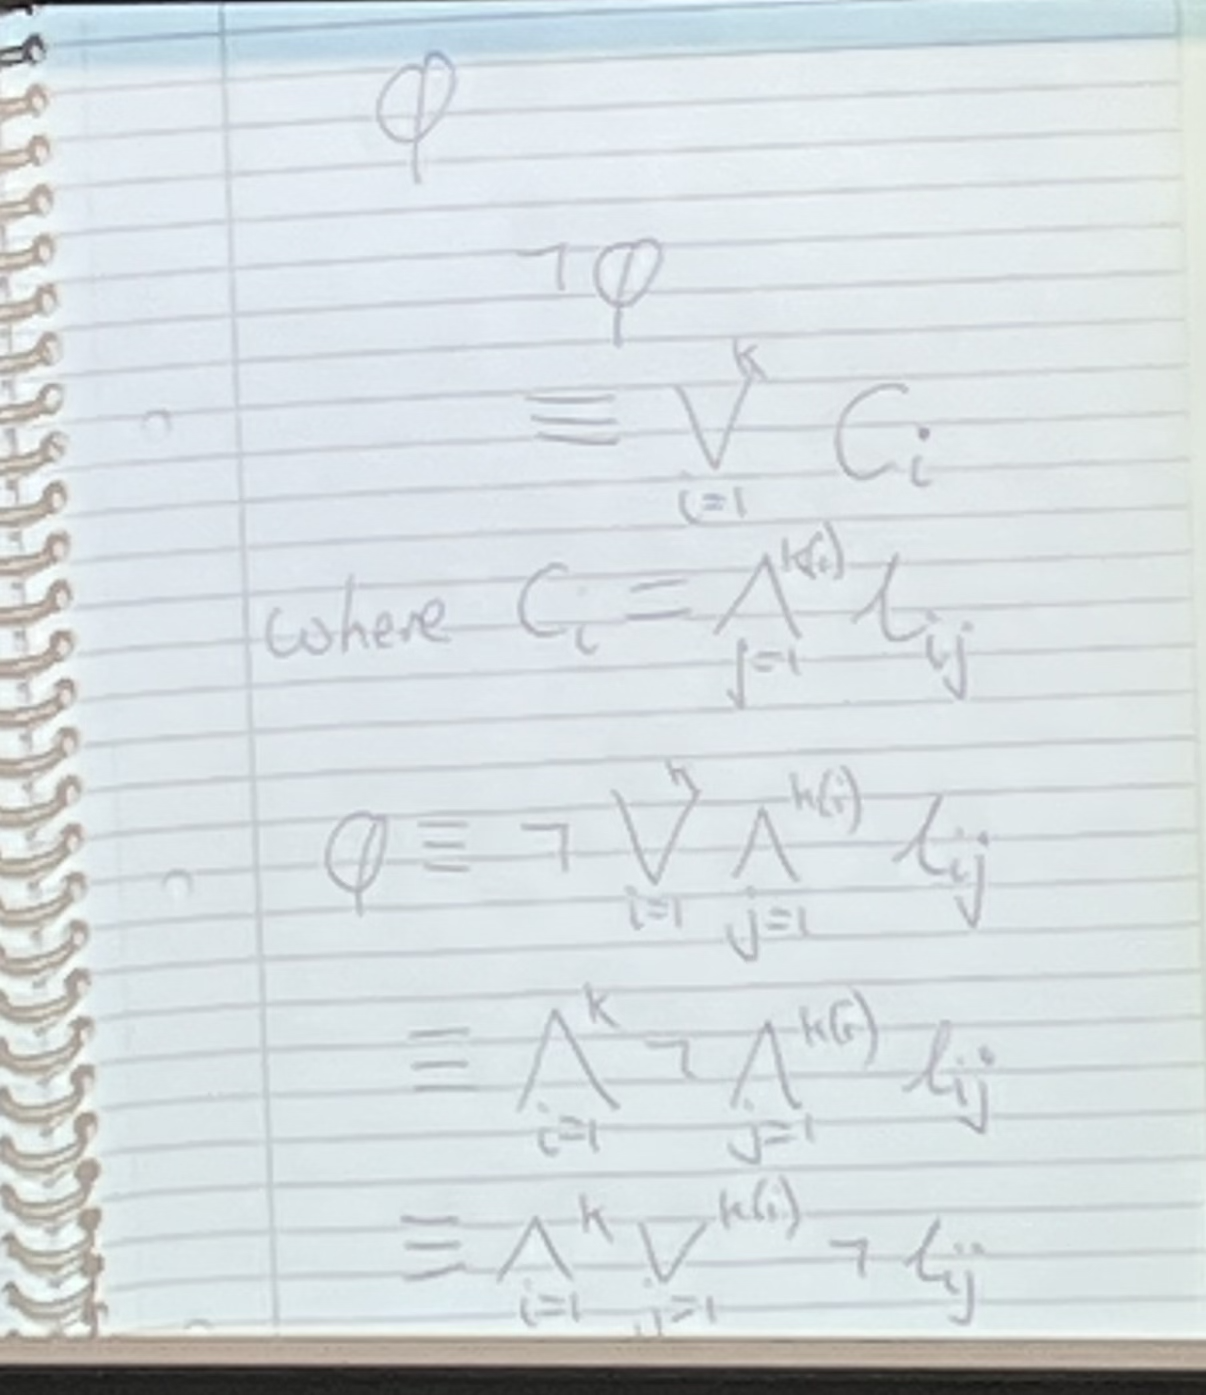 φ
¬φ
≡ ⋁_{i=1}^{k} C_i
where C_i = ⋀_{j=1}^{k(i)} l_{ij}
φ ≡ ¬ ⋁_{i=1}^{k} ⋀_{j=1}^{k(i)} l_{ij}
≡ ⋀_{i=1}^{k} ¬ ⋀_{j=1}^{k(i)} l_{ij}
≡ ⋀_{i=1}^{k} ⋁_{j=1}^{k(i)} ¬ l_{ij}